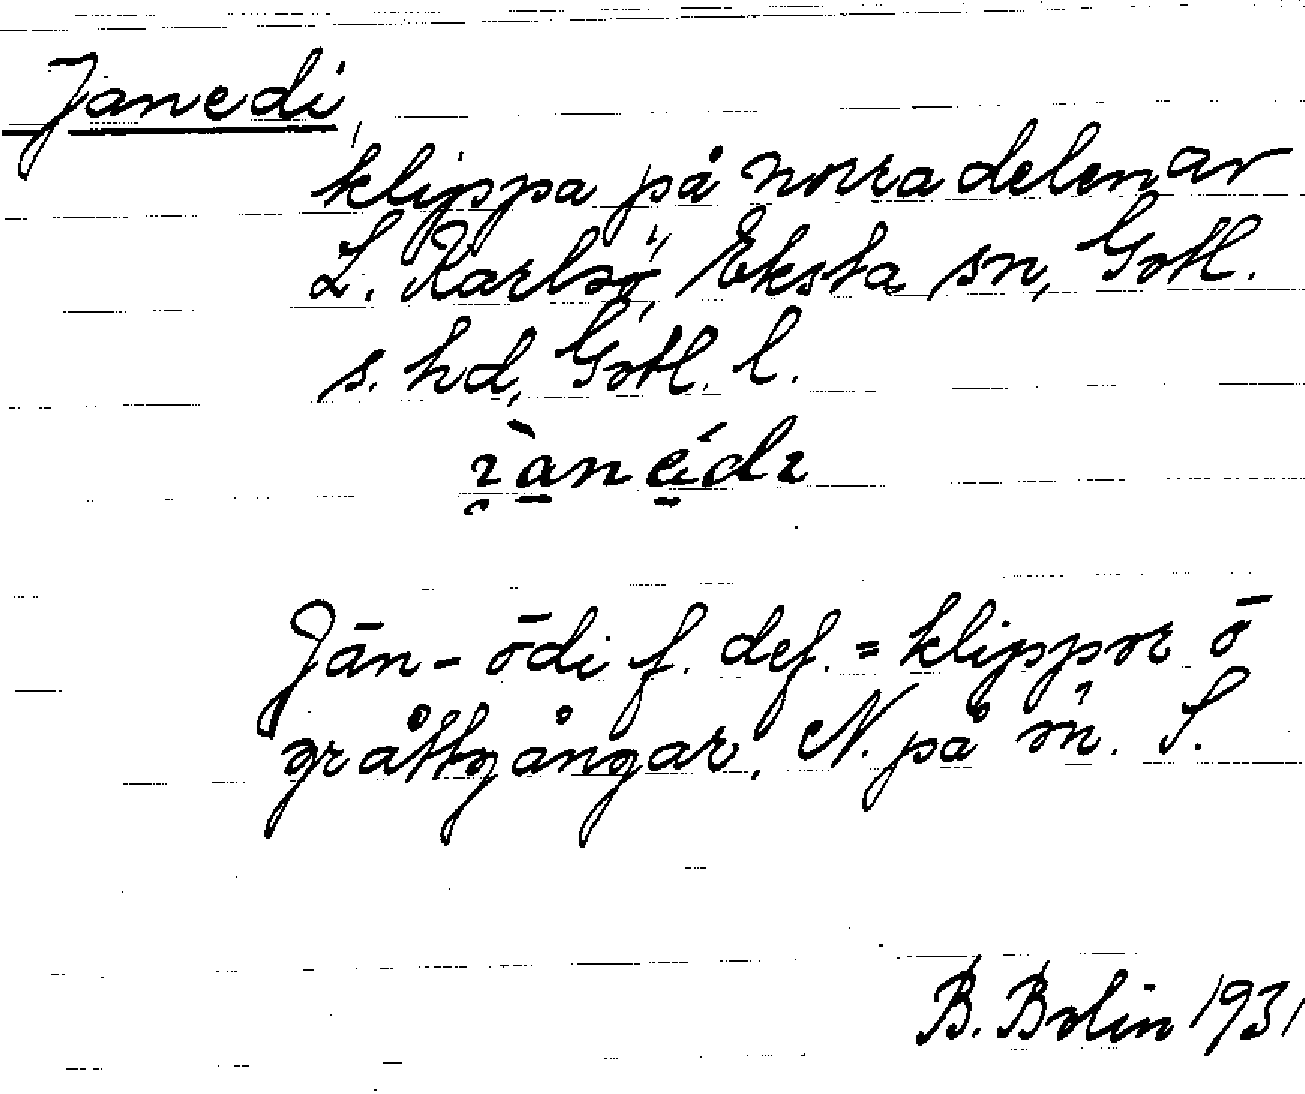 Janedi,
klippa på norra delen av
L. Karlsö, Eksta sn, Gotl.
s. hd, Gotl. l.
Jān- ōdi f. def. = klippor ō
gråttgångar, N. på ön. S.
B. Bolin 1931